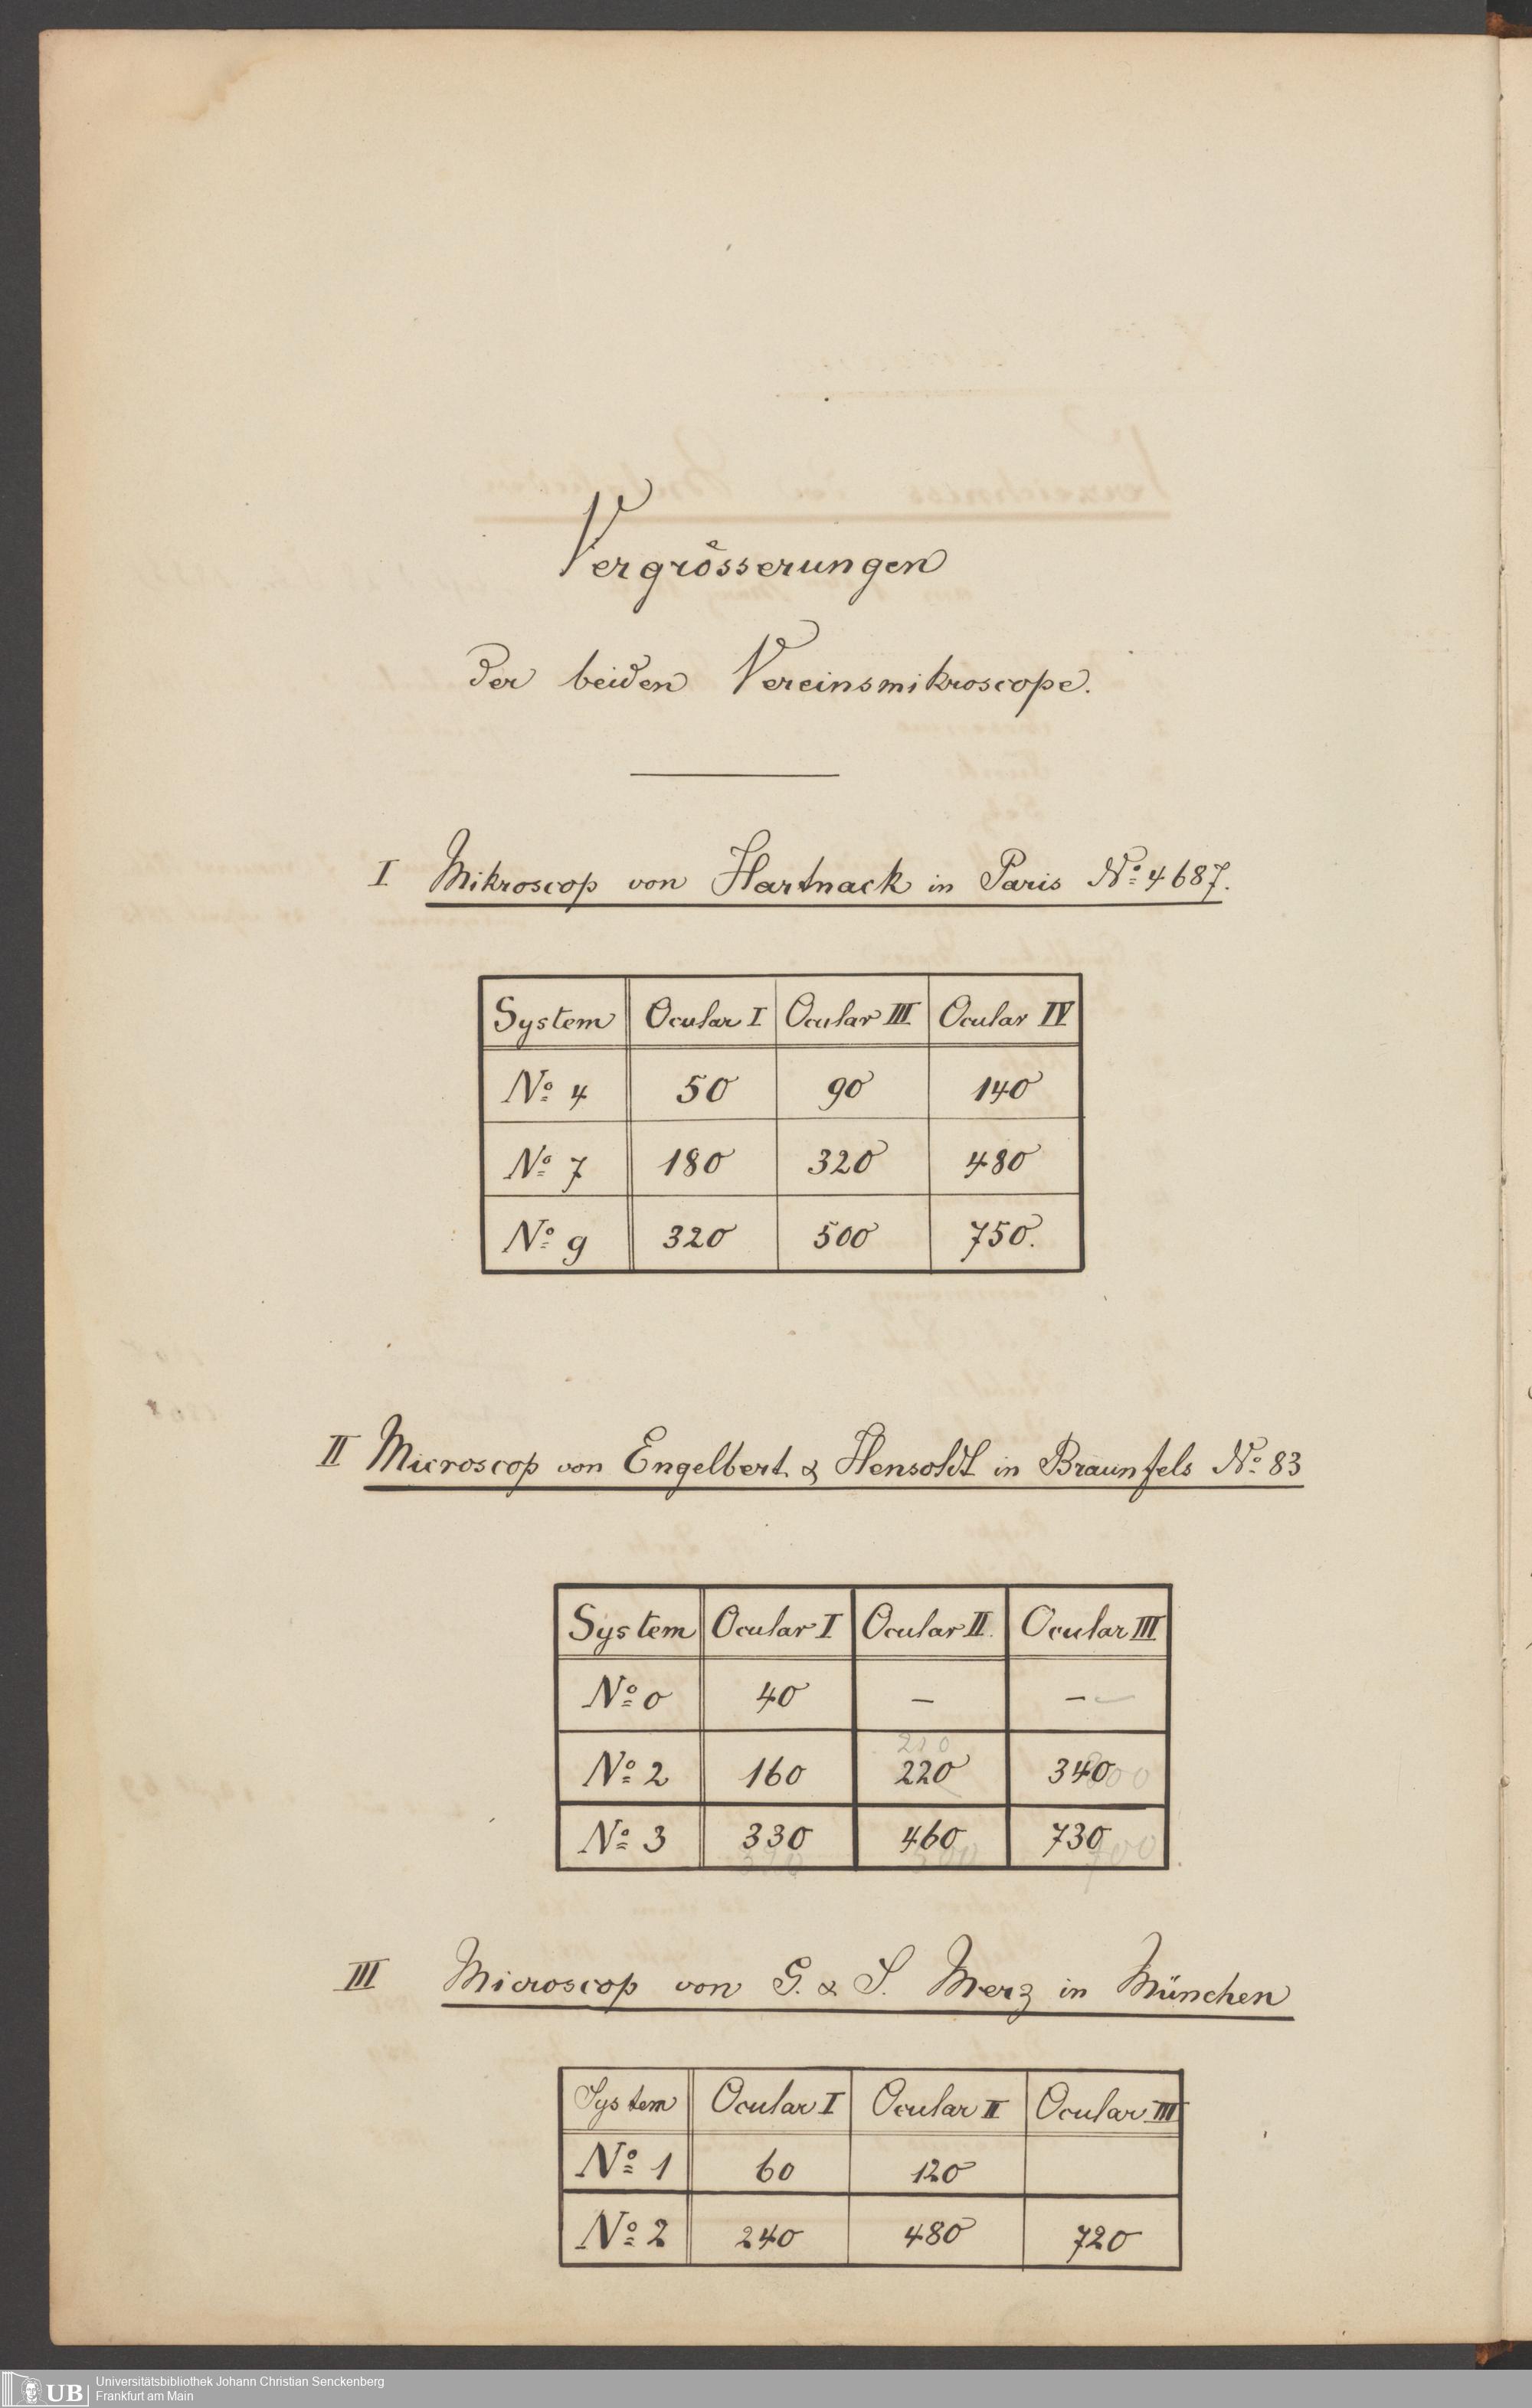 Vergrösserungen
der beiden Vereinsmikroscope.
I Mikroscop von Hartnack in Paris No: 4687.
System Ocular I Ocular III Ocular IV
No: 4 50 90 140
No: 7 180 320 480
No: 9 320 500 750.
II Microscop von Engelbert & Hensoldt in Braunfels No: 83
System Ocular I Ocular II. Ocular III
No: 0 40 – –
210
No: 2 160 220 340
No: 3 330 460 730
320 500 700
III Microscop von G. & S. Merz in München
System Ocular I Ocular II Ocular III
No: 1 60 120
No: 2 240 480 720
UB Universitätsbibliothek Johann Christian Senckenberg
Frankfurt am Main